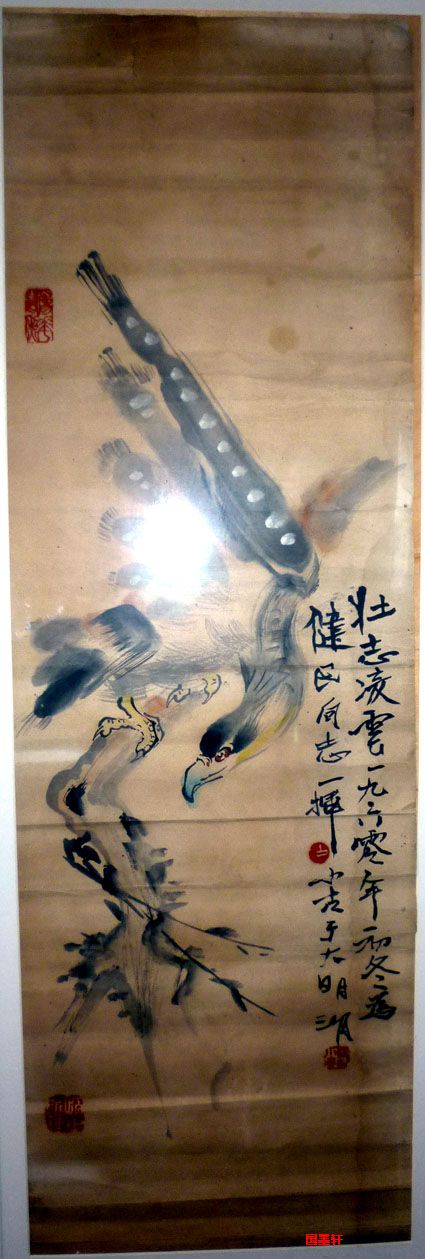 壮志凌雲一九六零年初冬為
健民同志一挥
古于大明湖
国墨轩